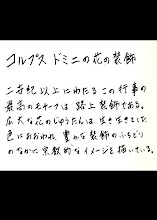 コルプス ドミニの花の装飾
二世紀以上にわたるこの行事の
最高のモチーフは 路上装飾である。
広大な花のじゅうたんは 生き生きとした
色におおわれ、豊かな装飾のふちどり
のなかに宗教的なイメージを描いている。